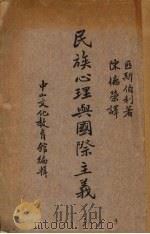 區斯伯利著
陳德榮譯
民族心理與國際主義
中山文化教育館編輯